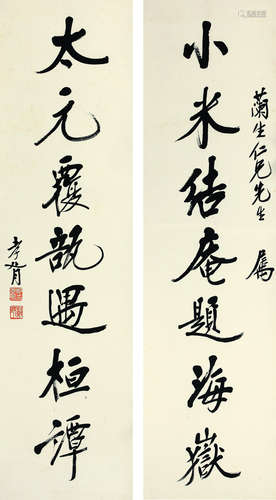 蘭生仁兄先生 屬
小米結庵題海嶽
太元覆瓿遇桓譚
孝胥